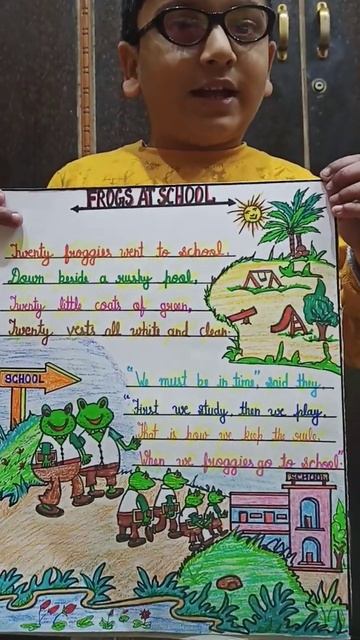 FROGS AT SCHOOL
Twenty froggies went to school
Down beside a rushy pool,
Twenty little coats of green,
Twenty vests all white and clean.
SCHOOL
"We must be in time", said they.
"First we study, then we play.
That is how we keep the rule,
When we froggies go to school"
SCHOOL